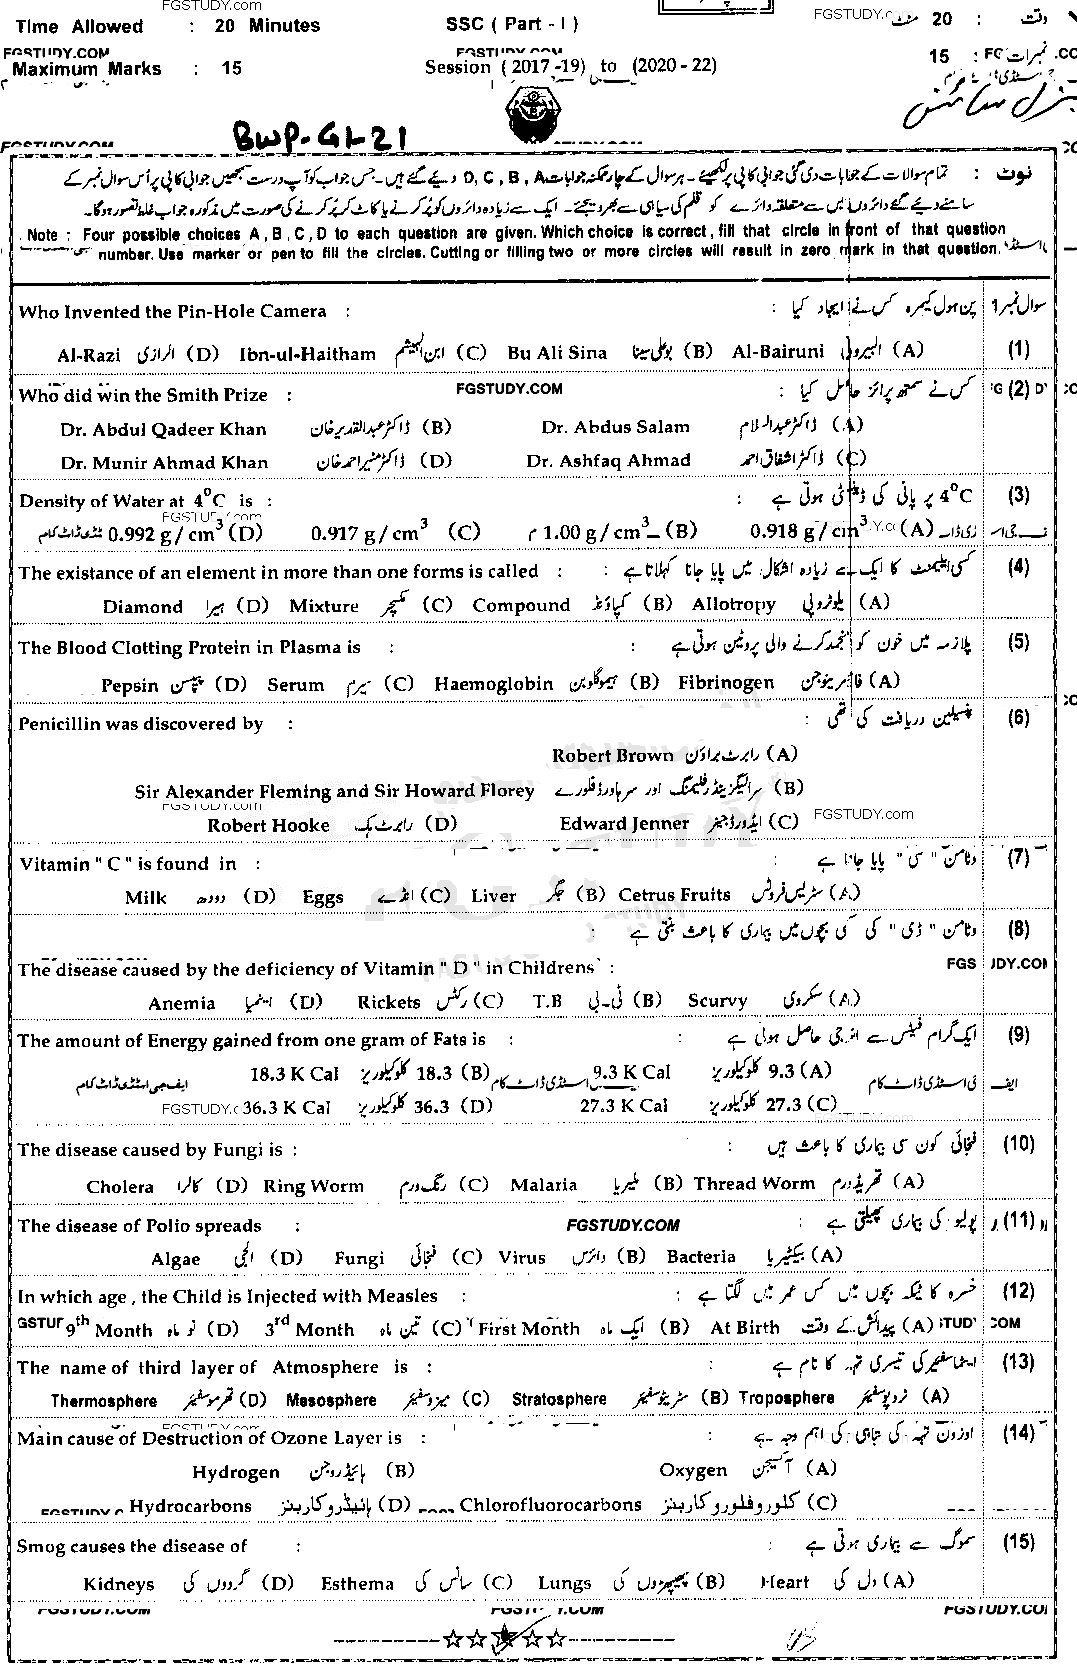 FGSTUDY.com
Time Allowed : 20 Minutes SSC ( Part - I ) FGSTUDY.C 20 منٹ : وقت
FGSTUDY.COM FGSTUDY.COM
Maximum Marks : 15 Session ( 2017 -19) to (2020 - 22) 15 : نمبرات
جنرل سائنس
BWP-G1-21
FGSTUDY.COM
نوٹ : تمام سوالات کے جوابات دی گئی جوابی کاپی پر لکھیئے ۔ ہر سوال کے چار ممکنہ جوابات D , C , B , A دیئے گئے ہیں۔ جس جواب کو آپ درست سمجھیں جوابی کاپی پر اُس سوال نمبر کے
سامنے دیئے گئے دائروں میں سے متعلقہ دائرے کو قلم کی سیاہی سے بھر دیجئے۔ ایک سے زیادہ دائروں کو پُر کرنے یا کاٹ کر پُر کرنے کی صورت میں مذکورہ جواب غلط تصور ہوگا۔
Note : Four possible choices A , B , C , D to each question are given. Which choice is correct, fill that circle in front of that question
number. Use marker or pen to fill the circles. Cutting or filling two or more circles will result in zero mark in that question.
Who Invented the Pin-Hole Camera : پن ہول کیمرہ کس نے ایجاد کیا : سوال نمبر 1
Al-Razi الرازی (D) Ibn-ul-Haitham ابن الہیثم (C) Bu Ali Sina بوعلی سینا (B) Al-Bairuni البیرونی (A) (1)
Who did win the Smith Prize : FGSTUDY.COM کس نے سمتھ پرائز حاصل کیا : (2)
Dr. Abdul Qadeer Khan ڈاکٹر عبدالقدیر خان (B) Dr. Abdus Salam ڈاکٹر عبدالسلام (A)
Dr. Munir Ahmad Khan ڈاکٹر منیر احمد خان (D) Dr. Ashfaq Ahmad ڈاکٹر اشفاق احمد (C)
Density of Water at 4°C is : 4°C پر پانی کی ڈینسٹی ہوتی ہے : (3)
0.992 g / cm³ (D) 0.917 g / cm³ (C) 1.00 g / cm³ (B) 0.918 g / cm³ (A)
The existance of an element in more than one forms is called : کسی ایلیمنٹ کا ایک سے زیادہ اشکال میں پایا جانا کہلاتا ہے : (4)
Diamond ہیرا (D) Mixture مکسچر (C) Compound کمپاؤنڈ (B) Allotropy ایلوٹروپی (A)
The Blood Clotting Protein in Plasma is : پلازمہ میں خون کو منجمد کرنے والی پروٹین ہوتی ہے : (5)
Pepsin پیپسن (D) Serum سیرم (C) Haemoglobin ہیموگلوبن (B) Fibrinogen فائبرینوجن (A)
Penicillin was discovered by : پنسیلین دریافت کی تھی : (6)
Robert Brown رابرٹ براؤن (A)
Sir Alexander Fleming and Sir Howard Florey سر الیگزینڈر فلیمنگ اور سر ہاورڈ فلورے (B)
Robert Hooke رابرٹ ہک (D) Edward Jenner ایڈورڈ جینر (C) FGSTUDY.com
Vitamin " C " is found in : وٹامن " سی " پایا جاتا ہے : (7)
Milk دودھ (D) Eggs انڈے (C) Liver جگر (B) Cetrus Fruits سٹریس فروٹس (A)
وٹامن " ڈی " کی کمی بچوں میں بیماری کا باعث بنتی ہے : (8)
The disease caused by the deficiency of Vitamin " D " in Childrens :
Anemia انیمیا (D) Rickets رکٹس (C) T.B ٹی-بی (B) Scurvy سکروی (A)
The amount of Energy gained from one gram of Fats is : ایک گرام فیٹس سے انرجی حاصل ہوتی ہے : (9)
18.3 K Cal 18.3 کلوکیلوریز (B) 9.3 K Cal 9.3 کلوکیلوریز (A)
36.3 K Cal 36.3 کلوکیلوریز (D) 27.3 K Cal 27.3 کلوکیلوریز (C)
The disease caused by Fungi is : فنجائی کون سی بیماری کا باعث ہیں : (10)
Cholera کالرا (D) Ring Worm رنگ ورم (C) Malaria ملیریا (B) Thread Worm تھریڈ ورم (A)
The disease of Polio spreads : FGSTUDY.COM پولیو کی بیماری پھیلتی ہے : (11)
Algae الجی (D) Fungi فنجائی (C) Virus وائرس (B) Bacteria بیکٹیریا (A)
In which age , the Child is Injected with Measles : خسرہ کا ٹیکہ بچوں میں کس عمر میں لگتا ہے : (12)
9th Month نو ماہ (D) 3rd Month تین ماہ (C) First Month ایک ماہ (B) At Birth پیدائش کے وقت (A)
The name of third layer of Atmosphere is : ایٹماسفیئر کی تیسری تہہ کا نام ہے : (13)
Thermosphere تھرموسفیئر (D) Mesosphere میزوسفیئر (C) Stratosphere سٹریٹوسفیئر (B) Troposphere ٹروپوسفیئر (A)
Main cause of Destruction of Ozone Layer is : اوزون تہہ کی تباہی کی اہم وجہ ہے : (14)
Hydrogen ہائیڈروجن (B) Oxygen آکسیجن (A)
Hydrocarbons ہائیڈروکاربنز (D) Chlorofluorocarbons کلوروفلوروکاربنز (C)
Smog causes the disease of : سموگ سے بیماری ہوتی ہے : (15)
Kidneys گردوں کی (D) Esthema سانس کی (C) Lungs پھیپھڑوں کی (B) Heart دل کی (A)
FGSTUDY.COM FGSTUDY.COM FGSTUDY.COM